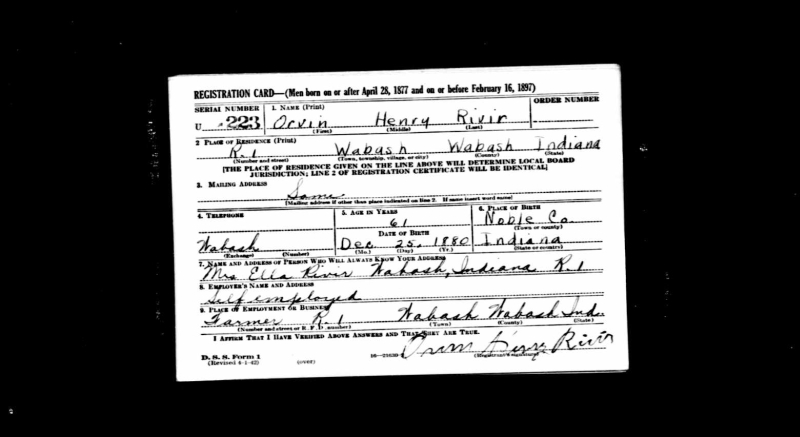 REGISTRATION CARD—(Men born on or after April 28, 1877 and on or before February 16, 1897)
SERIAL NUMBER 1. NAME (Print) ORDER NUMBER
U 223 Orvin Henry Rivir
(First) (Middle) (Last)
2 PLACE OF RESIDENCE (Print)
R.1 Wabash Wabash Indiana
(Number and street) (Town, township, village, or city) (County) (State)
[THE PLACE OF RESIDENCE GIVEN ON THE LINE ABOVE WILL DETERMINE LOCAL BOARD
JURISDICTION; LINE 2 OF REGISTRATION CERTIFICATE WILL BE IDENTICAL]
3. MAILING ADDRESS
Same
[Mailing address if other than place indicated on line 2. If same insert word same]
4. TELEPHONE 5. AGE IN YEARS 6. PLACE OF BIRTH
61 Noble Co.
DATE OF BIRTH (Town or county)
Wabash Dec. 25, 1880 Indiana
(Exchange) (Number) (Mo.) (Day) (Yr.) (State or country)
7. NAME AND ADDRESS OF PERSON WHO WILL ALWAYS KNOW YOUR ADDRESS
Mrs Ella Rivir Wabash, Indiana R.1
8. EMPLOYER'S NAME AND ADDRESS
Self employed
9. PLACE OF EMPLOYMENT OR BUSINESS
Farmer R.1 Wabash Wabash Ind.
(Number and street or R. F. D. number) (Town) (County) (State)
I AFFIRM THAT I HAVE VERIFIED ABOVE ANSWERS AND THAT THEY ARE TRUE.
D. S. S. Form 1 Orvin Henry Rivir
(Revised 4-1-42) (over) (Registrant's signature)